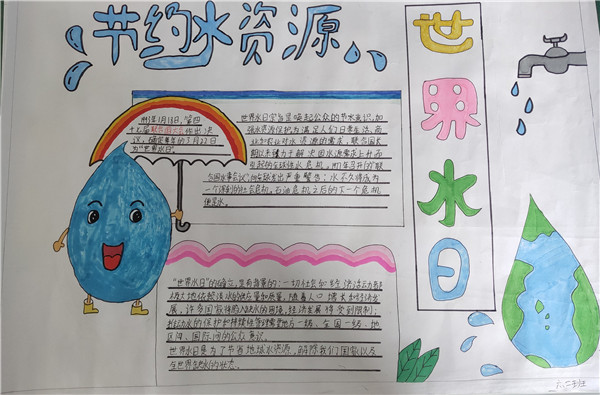 节约水资源
世界水日
1993年1月18日,第四
十七届联合国大会作出决
议,确定每年的3月22日
为"世界水日"。
世界水日宗旨是唤起公众的节水意识,加
强水资源保护为满足人们日常生活,商
业和农业对水资源的需求,联合国长
期以来致力于解决因水源需求上升而
引起的全球性水危机,1977年召开的"联
合国水事会议",向全球发出严重警告:水不久将成为
一个深刻的社会危机,石油危机之后的下一个危机
便是水。
"世界水日"的确立,是有背景的:一切社会和经济活动都
极大地依赖淡水的供应量和质量,随着人口增长和经济发
展,许多国家将陷入缺水的困境,经济发展将受到限制,
推动水的保护和持续性管理需要地方一级、全国一级、地
区间、国际间的公众意识。
世界水日是为了节省地球水资源,